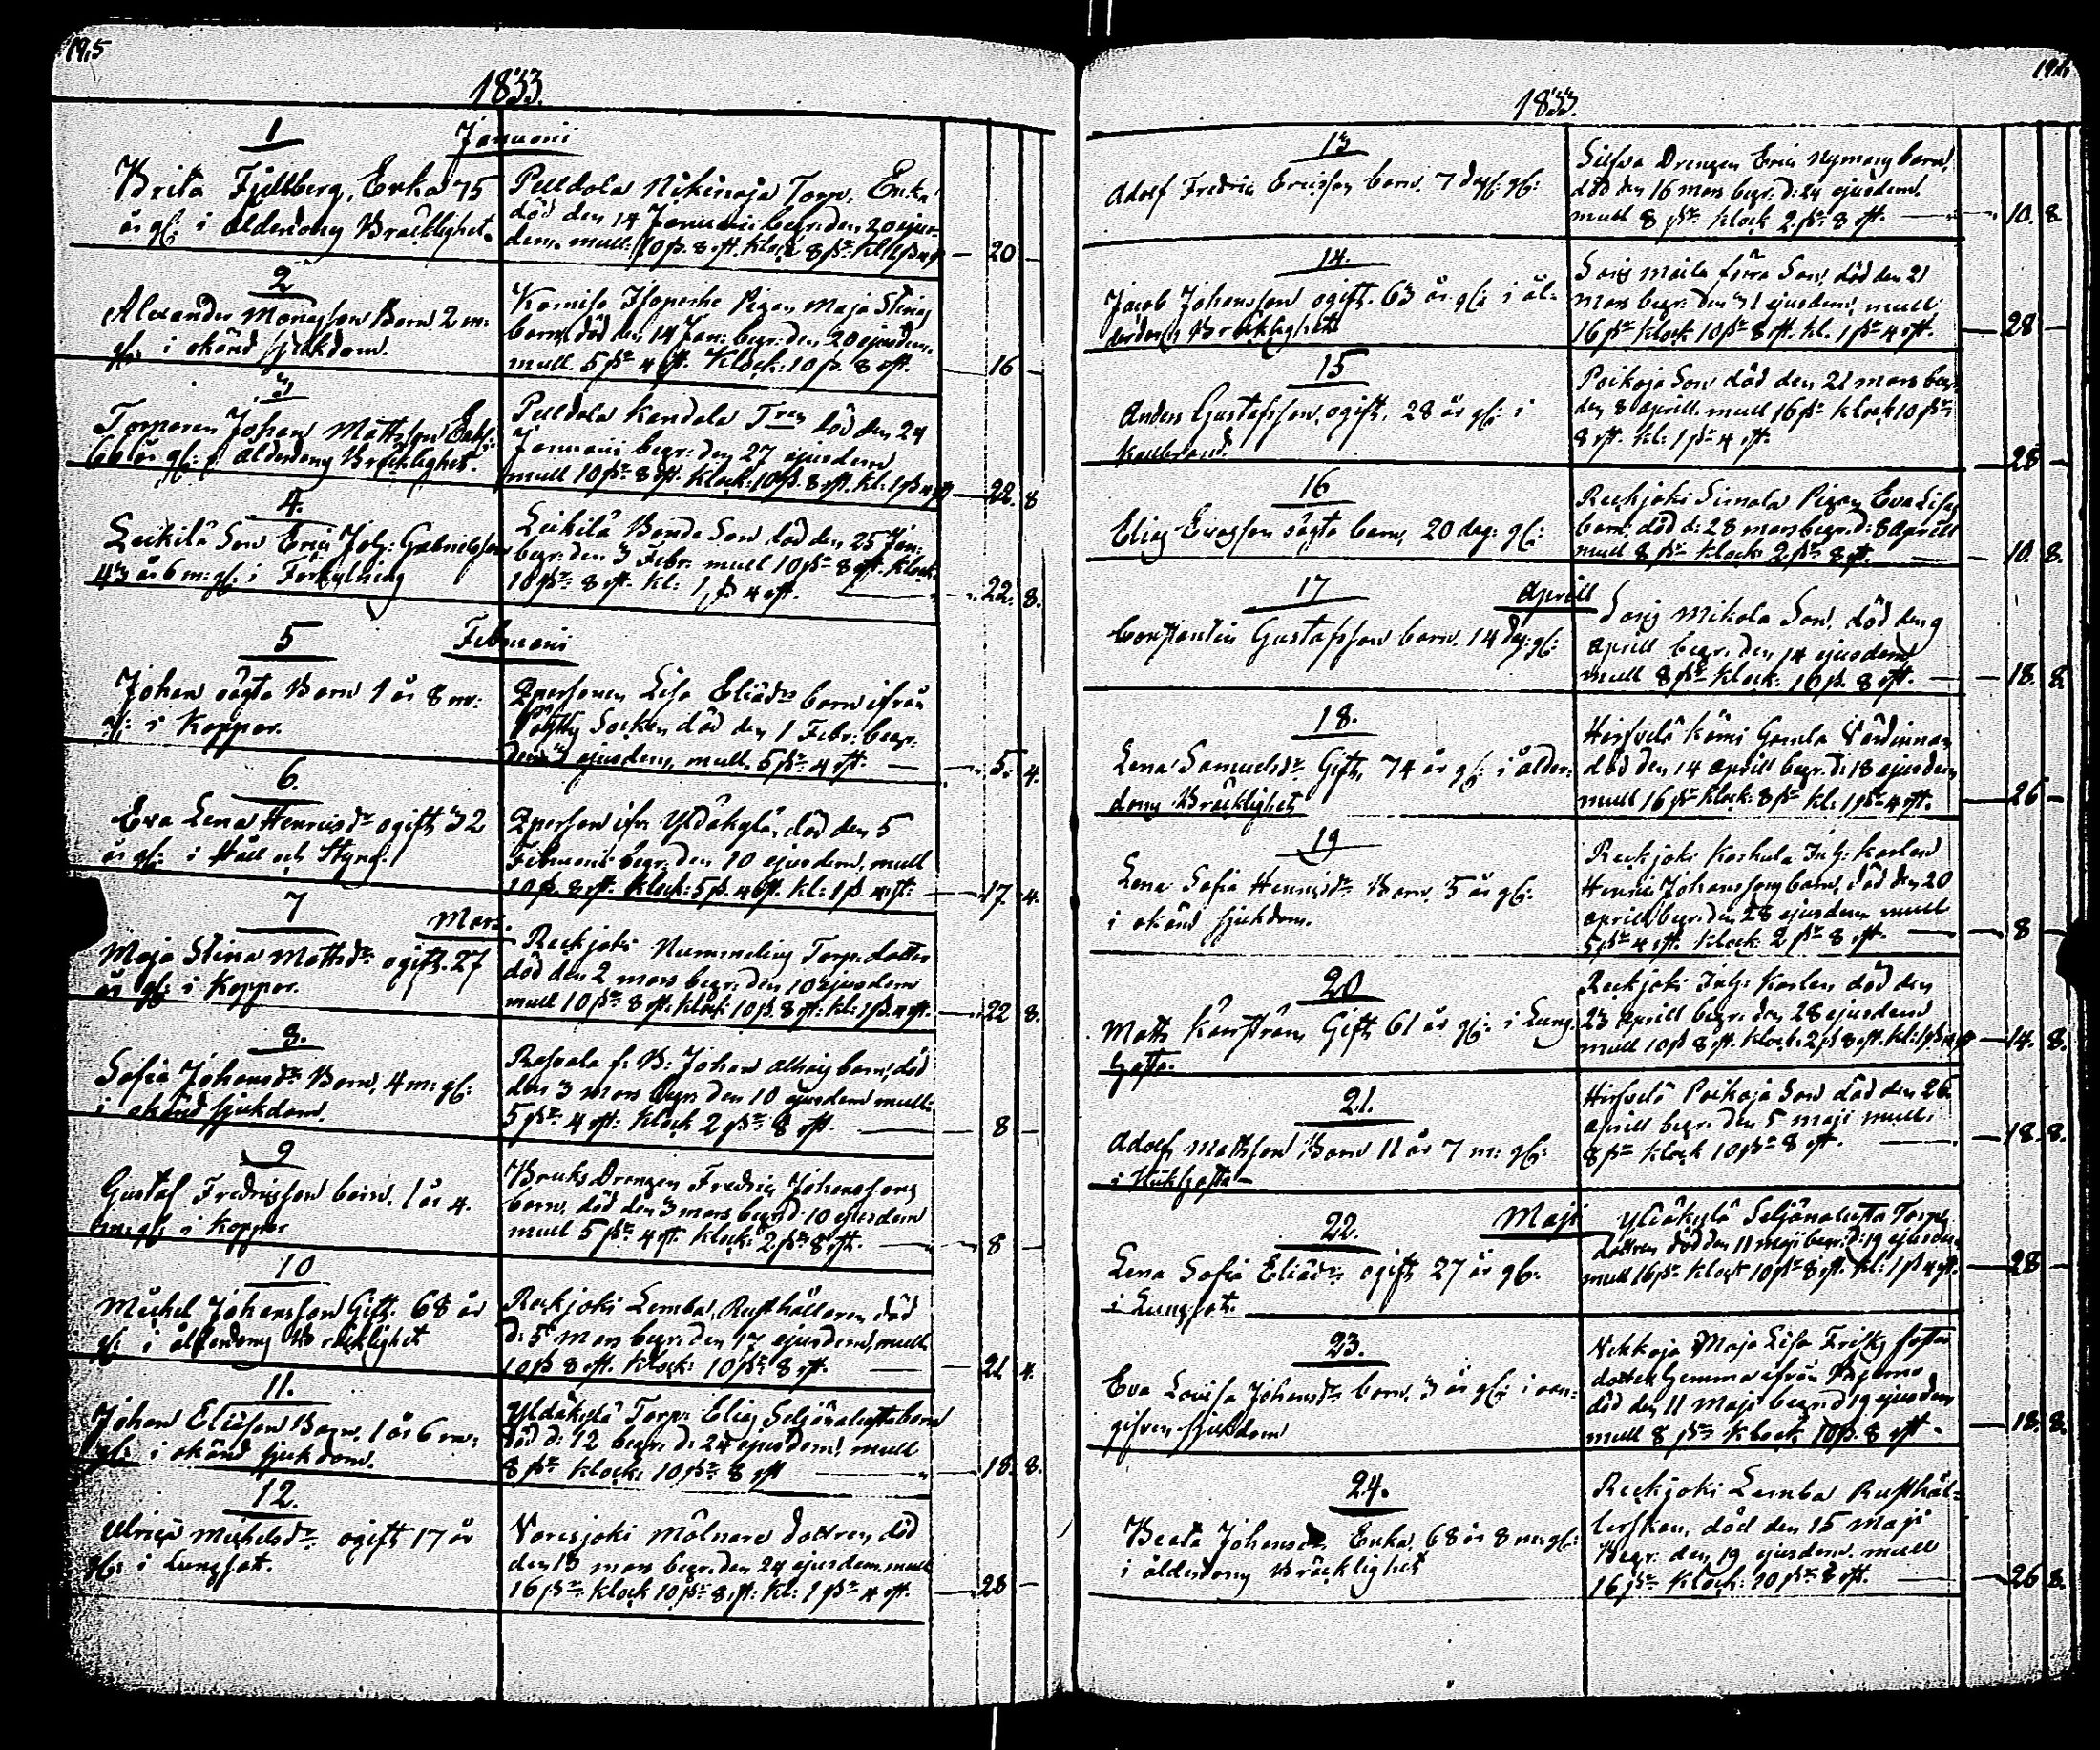 1833.
1
Januari
Brita Fjellberg, Enka 75
år gl: i ålderdoms Bräcklighet.
Pelldola Nikinoja Torp. Enka
död den 14 Januarii begr. den 20 ejus-
dem. mull. 10 ß. 8 rst. Klock 8 ßr kl 1 ß 4 rst
20 –
2
Alexander Månsson Barn 2 m:
gl: i okänd sjukdom.
Isoperhe Pigan Maja Stinas
barn, död den 14 Jan: begr: den 20 ejusdem.
mull. 5 ßr 4 rst. Klock: 10 ß. 8 rst.
16 –
3
Torparen Johan Mattsson
år gl: i ålderdoms Bräcklighet.
Pelldola Kandola död den 24
Januarii begr: den 27 ejusdem
mull 10 ßr 8 rst. Klock: 10 ß. 8 rst. kl: 1 ß 4 rst
22. 8
4.
Leikilä Son Eric Joh: Gabrielsson
43 år 6 m: gl: i Förkylning
Leikilä Bonde Son död den 25 Jan:
begr: den 3 Febr: mull 10 ßr 8 rst. Klock.
10 ßr 8 rst. kl: 1 ß 4 rst.
22. 8.
5
Februari
Johan oägta Barn 1 år 8 m:
gl: i Koppor.
Qpersonen Lisa Eliädr barn ifrån
Socken död den 1 Febr: begr.
den 3 ejusdem, mull. 5 ßr 4 rst.
5. 4.
6.
Eva Lena Henricsdr ogift, 32
år gl: i Håll och Styng.
Qperson ifr. Yliäkylä, död den 5
Februari begr. den 10 ejusdem, mull
10 ß. 8 rst. Klock: 5 ß. 4 rst. kl: 1 ß. 4 rst:
17. 4.
7
Mars.
Maja Stina Mattsdr ogift. 27
år gl: i Koppor.
Reckjoki Nummelins Torp. dotter
död den 2 mars begr. den 10 ejusdem
mull 10 ßr 8 rst: Klock 10 ß. 8 rst: kl: 1 ß. 4 rst.
22 8.
8.
Sofia Johansdr Barn, 4 m: gl:
i okänd sjukdom.
f: B: Johan barn, död
den 3 mars begr. den 10 ejusdem mull.
5 ßr 4 rst: Klock 2 ßr 8 rst.
8 –
9
Gustaf Fredricsson barn. 1 år 4.
m: gl: i Koppor
Bruks Drengen Fredric Johanssons
barn, död den 3 mars begr. d: 10 ejusdem
mull 5 ßr 4 rst. Klock: 2 ßr 8 rst.
8 –
10
Michel Johansson Gift. 68 år
gl: i ålderdoms Bräcklighet
Reckjoki Lemba, Rusthållaren död
d: 5 mars begr. den 17 ejusdem, mull.
10 ß 8 rst. Klock: 10 ßr 8 rst.
21 4.
11.
Johan Eliasson Barn. 1 år 6 m:
gl: i okänd sjukdom.
Yliäkylä Torp: Elias Seljänalusta barn
död d: 12 begr. d: 24 ejusdem, mull
8 ßr Klock: 10 ßr 8 rst
18. 8.
12.
Ulrica Michelsdr ogift 17 år
gl: i Lungsot.
Varesjoki Mölnare dottren, död
den 13 mars begr. den 24 ejusdem. mull
16 ßr Klock 10 ßr 8 rst: kl: 1 ßr 4 rst.
28 –
1833.
13
Adolf Fredric Ericsson barn. 7 dag: gl:
Drengen Eric Nymans barn,
död den 16 mars begr. d: 24 ejusdem.
mull 8 ßr Klock 2 ßr 8 rst.
10. 8.
14.
Jacob Johansson ogift. 63 år gl: i ål-
derdoms Bräcklighet
Sorig Son, död den 21
mars begr. den 31 ejusdem, mull
16 ßr Klock 10 ßr 8 rst. kl. 1 ßr 4 rst.
28 –
15
Anders Gustafsson, ogift, 28 år gl: i
Kallbrand.
Poikoja Son död den 21 mars begr.
den 8 aprill. mull 16 ßr Klock 10 ßr
8 rst. kl: 1 ßr 4 rst.
28 –
16
Elias oägta barn, 20 dag: gl:
Reckjoki Simola Pigan Eva Lisas
barn, död d: 28 mars begr. d: 8 aprill
mull 8 ßr Klock 2 ßr 8 rst.
10. 8.
17
Aprill
Constantin Gustafsson barn. 14 dag: gl:
Sorig Mikola Son, död den 9
aprill begr. den 14 ejusdem
mull 8 ßr Klock. 10 ß. 8 rst.
18. 8.
18.
Lena Samuelsdr Gift, 74 år gl: i ålder-
doms Bräcklighet
Hirsvelä Kämi Gamla Värdinnan
död den 14 aprill begr. d: 18 ejusdem
mull 16 ßr Klock: 8 ßr kl: 1 ßr 4 rst.
26 –
19
Lena Sofia Henricsdr Barn, 5 år gl:
i okänd sjukdom.
Reckjoki Koskula Inh: Karlen
Henric Johanssons barn, död den 20
aprill begr. den 28 ejusdem mull
5 ßr 4 rst. Klock. 2 ßr 8 rst.
8 –
20
Matts Gift, 61 år gl: i Lung-
sot.
Reckjoki Inh: Karlen död den
23 aprill begr. den 28 ejusdem
mull 10 ß 8 rst. Klock: 2 ß 8 rst. kl: 1 ß 4 rst
14. 8.
21.
Adolf Mattsson Barn 11 år 7 m: gl:
Hirsvelä Poikoja Son död den 26
aprill begr. den 5 maji mull.
8 ßr Klock 10 ßr 8 rst.
18. 8.
22.
Maji
Lena Sofia Eliädr ogift 27 år gl.
i Lungsot.
Yliäkylä Seljänalusta Torp:
dottren död den 11 maji begr. d: 19 ejusdem
mull 16 ßr Klock 10 ßr 8 rst. kl: 1 ß 4 rst.
28 –
23.
Eva Lovisa Johansdr barn, 3 år gl: i oan-
gifven sjukdom
Maja Lisa Frisks
från Bjerno
död den 11 maji begr. d 19 ejusdem
mull 8 ßr Klock 10 ß. 8 rst.
18. 8.
24.
Beata Johansdr Enka, 68 år 8 m: gl:
i ålderdoms Bräcklighet
Reckjoki Lemba Rusthål-
lerskan, död den 15 maji
Begr: den 19 ejusdem. mull
16 ßr Klock: 10 ßr 8 rst.
26 8.